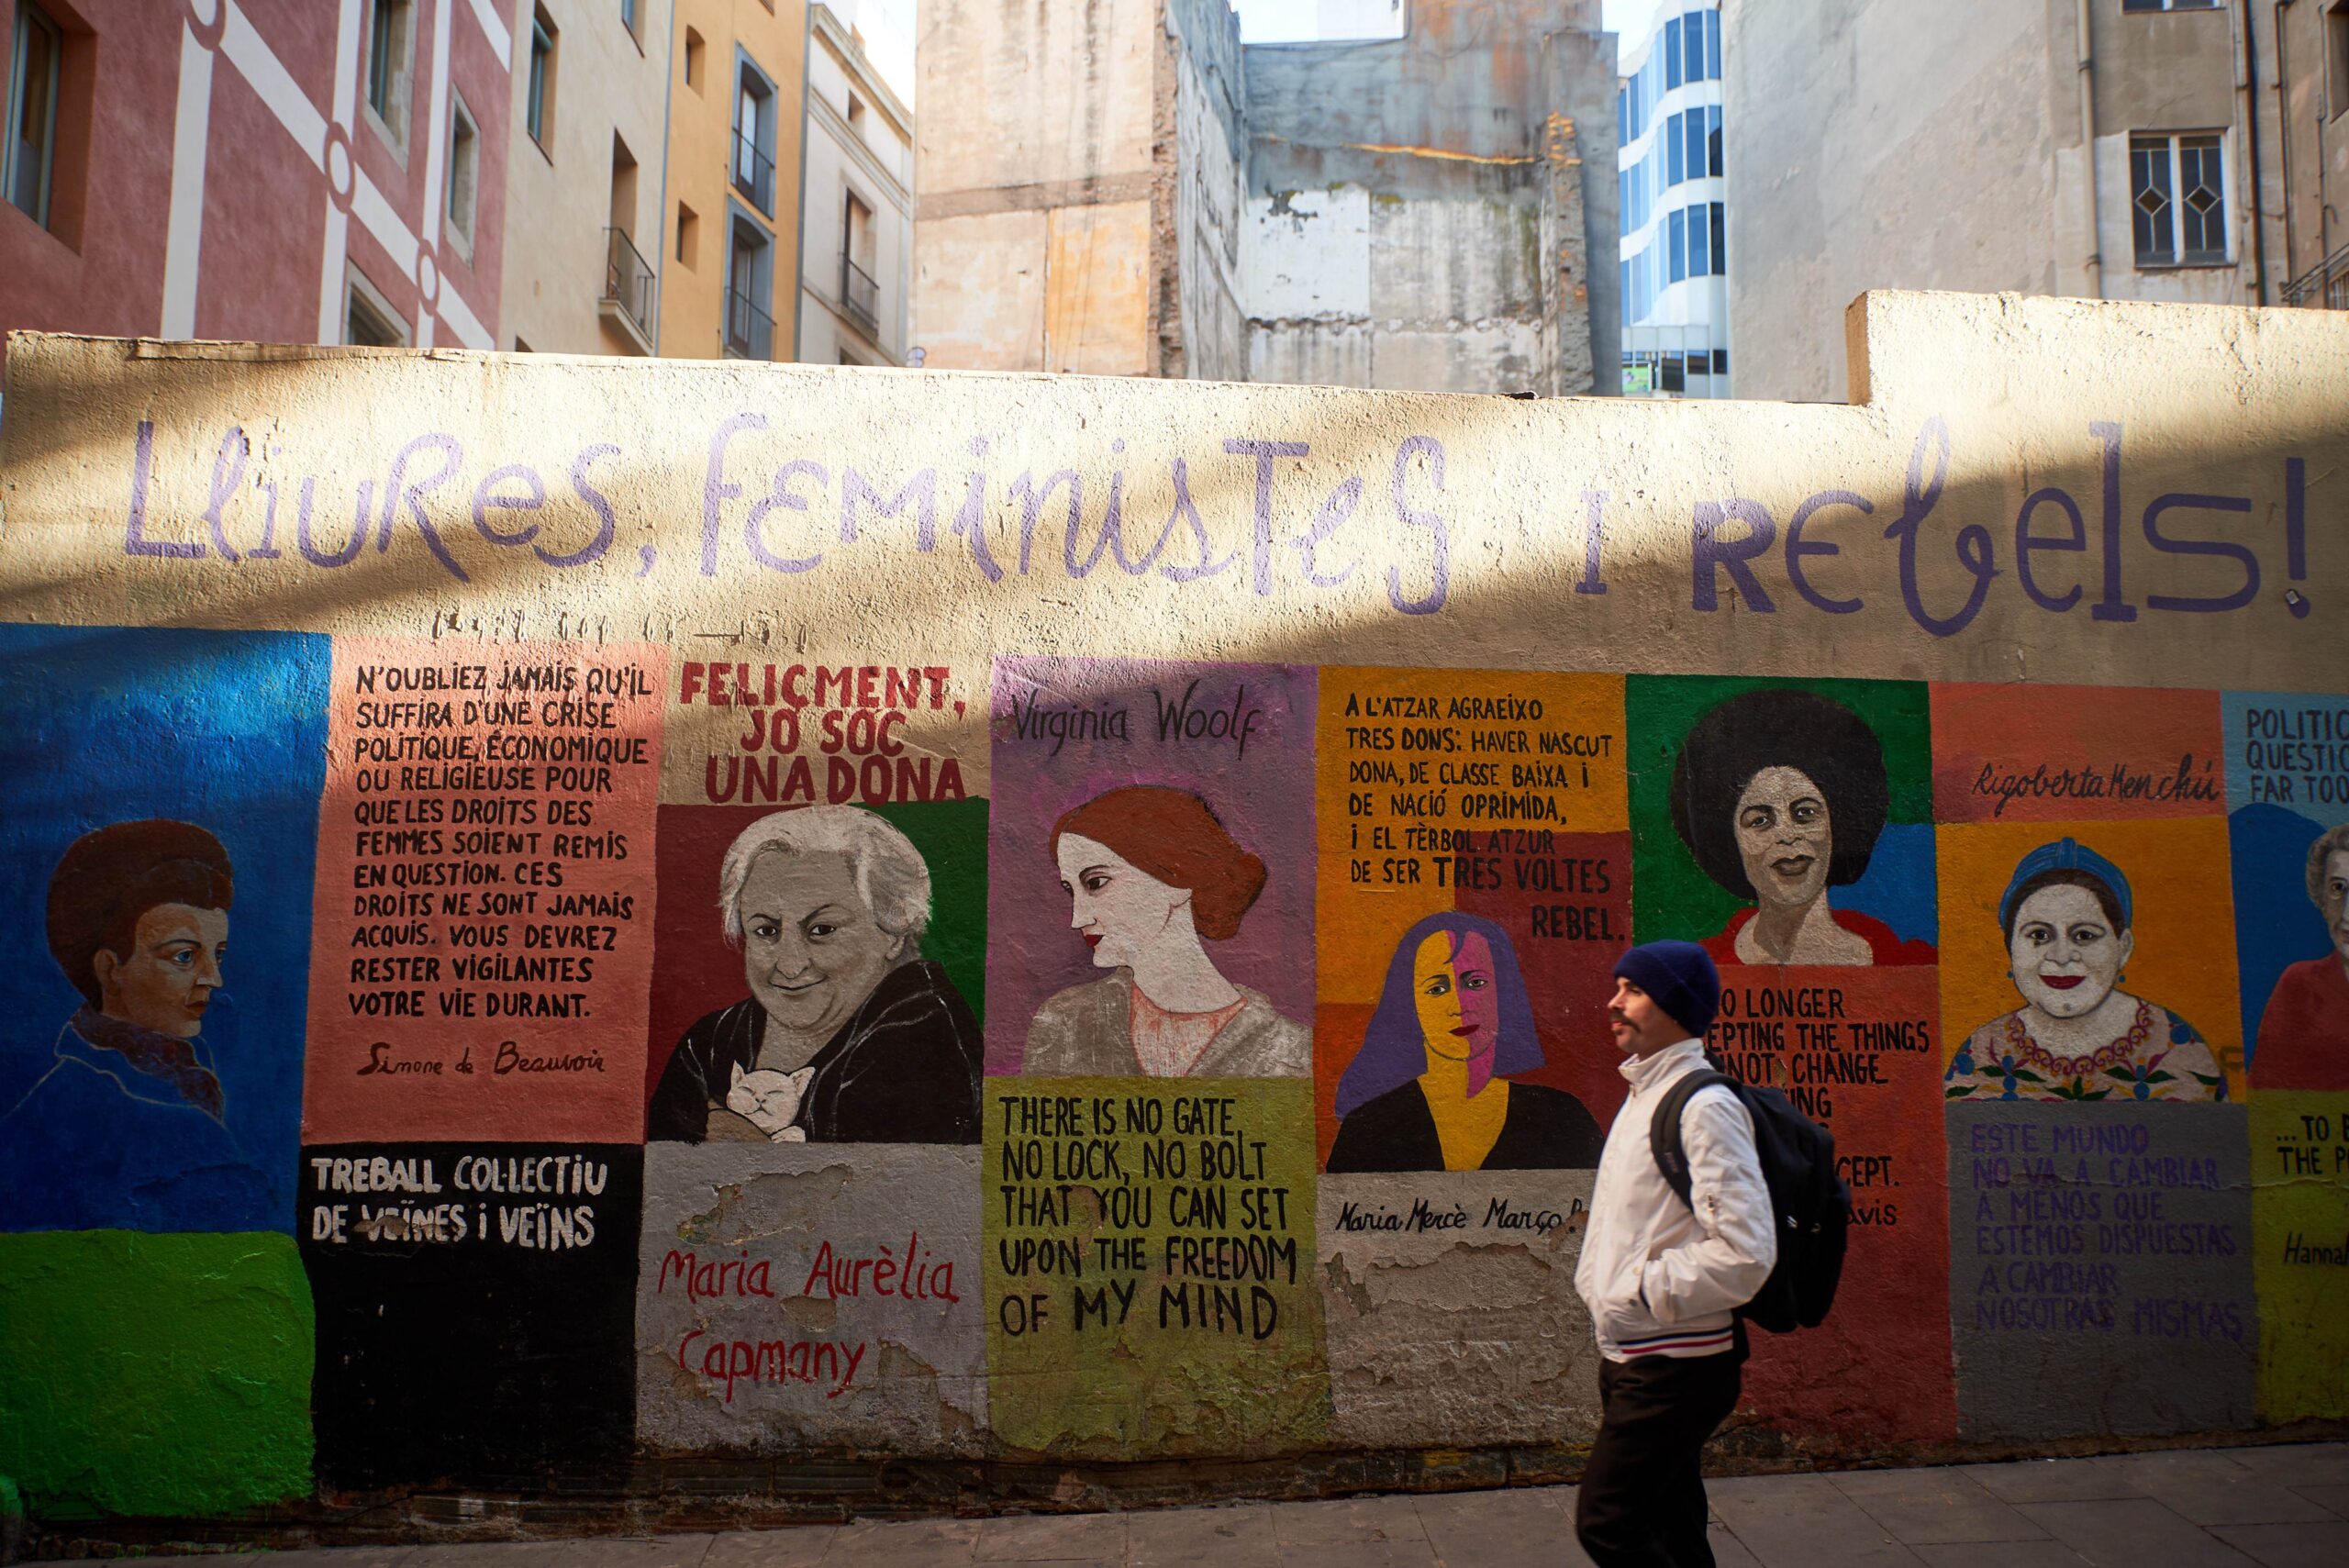 Lliures, feministes i rebels!
N'OUBLIEZ JAMAIS QU'IL
SUFFIRA D'UNE CRISE
POLITIQUE, ÉCONOMIQUE
OU RELIGIEUSE POUR
QUE LES DROITS DES
FEMMES SOIENT REMIS
EN QUESTION. CES
DROITS NE SONT JAMAIS
ACQUIS. VOUS DEVREZ
RESTER VIGILANTES
VOTRE VIE DURANT.
Simone de Beauvoir
TREBALL COL·LECTIU
DE VEÏNES i VEÏNS
FELIÇMENT,
JO SÓC
UNA DONA
Maria Aurèlia
Capmany
Virginia Woolf
THERE IS NO GATE,
NO LOCK, NO BOLT
THAT YOU CAN SET
UPON THE FREEDOM
OF MY MIND
A L'ATZAR AGRAEIXO
TRES DONS: HAVER NASCUT
DONA, DE CLASSE BAIXA i
DE NACIÓ OPRIMIDA,
i EL TÈRBOL ATZUR
DE SER TRES VOLTES
REBEL.
Maria Mercè Març
O LONGER
EPTING THE THINGS
NOT CHANGE
ING
CEPT.
avis
Rigoberta Menchú
ESTE MUNDO
NO VA A CAMBIAR
A MENOS QUE
ESTEMOS DISPUESTAS
A CAMBIAR
NOSOTRAS MISMAS
POLITIC
QUESTIO
FAR TOO
...TO
THE P
Hannah